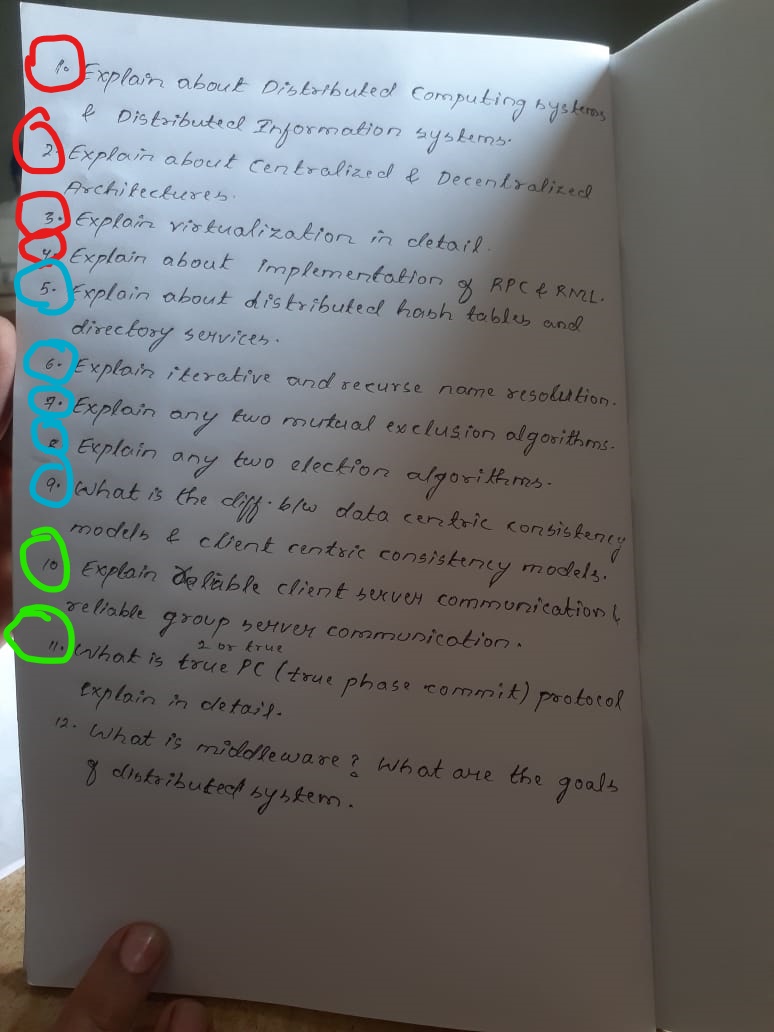 1. Explain about Distributed Computing systems
& Distributed Information systems.
2. Explain about Centralized & Decentralized
Architectures.
3. Explain virtualization in detail.
4. Explain about implementation of RPC & RMI.
5. Explain about distributed hash tables and
directory services.
6. Explain iterative and recurse name resolution.
7. Explain any two mutual exclusion algorithms.
8 Explain any two election algorithms.
9. What is the diff. b/w data centric consistency
models & client centric consistency models.
10 Explain reliable client server communication &
reliable group server communication.
2 or true
11. What is true PC (true phase commit) protocol
explain in detail.
12. What is middleware? What are the goals
of distributed system.